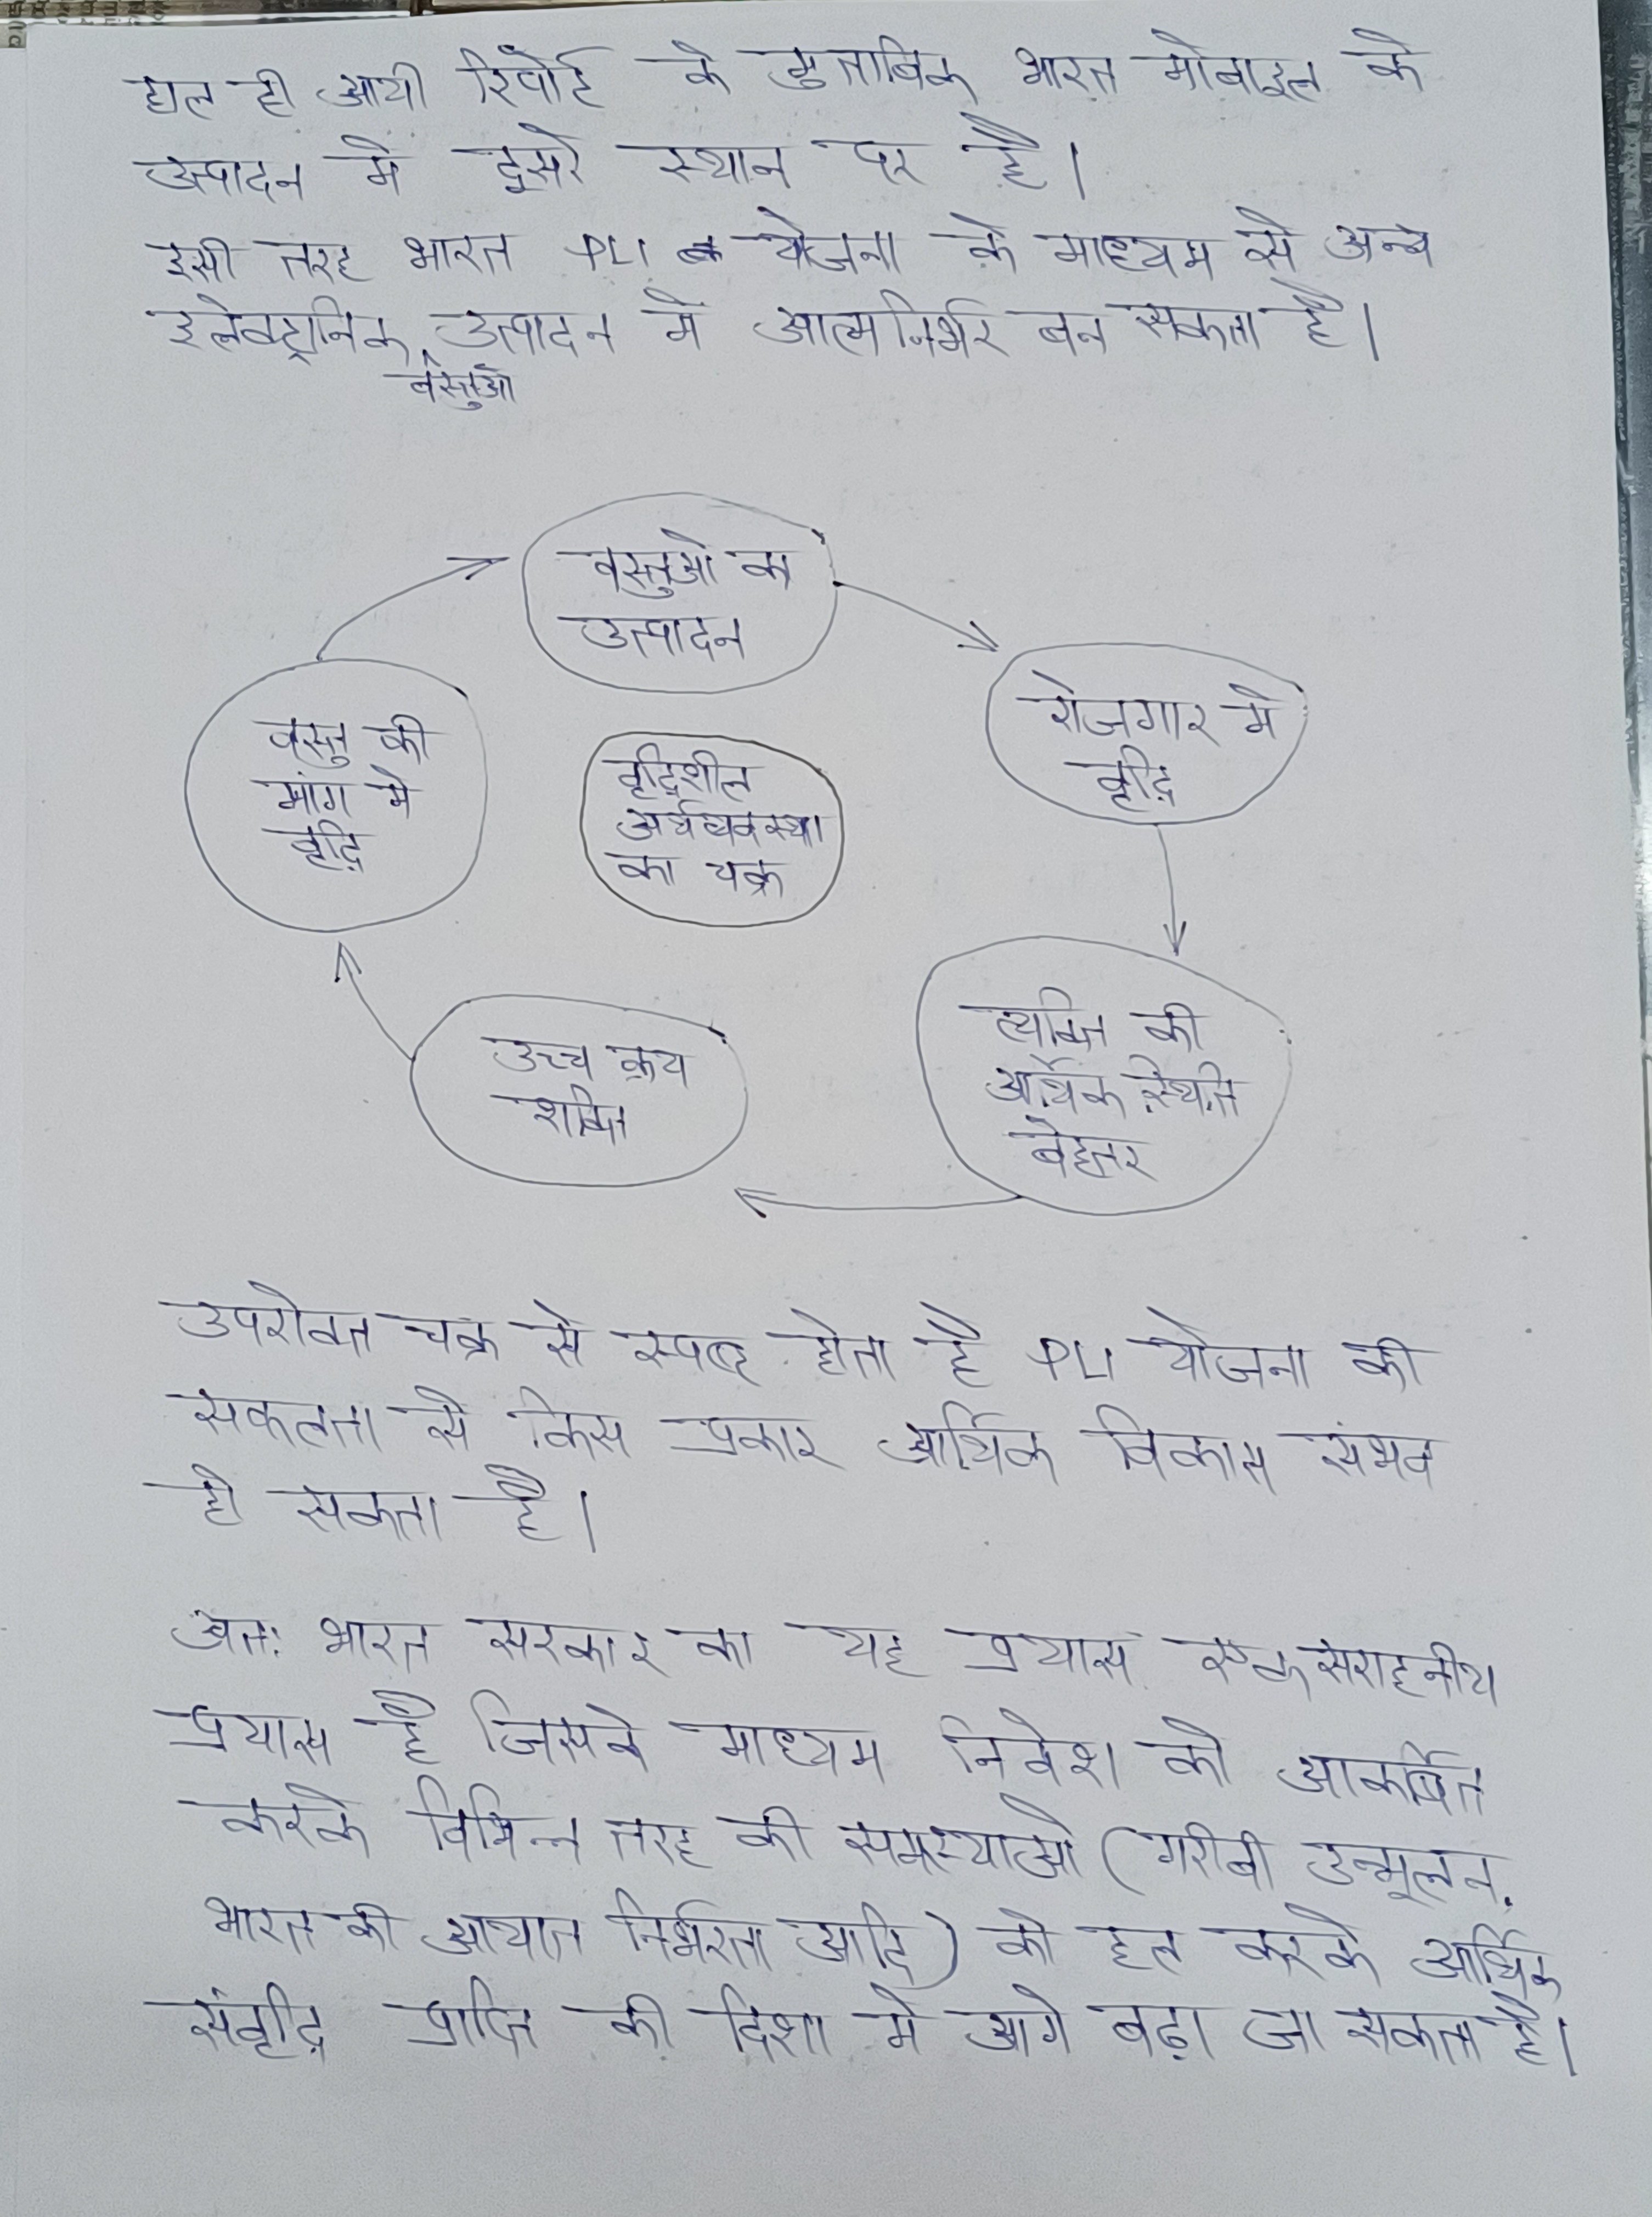 हाल ही आयी रिपोर्ट के मुताबिक भारत मोबाइल के
उत्पादन में दूसरे स्थान पर है।
इसी तरह भारत PLI योजना के माध्यम से अन्य
इलेक्ट्रानिक उत्पादन में आत्मनिर्भर बन सकता है।
वस्तुओ
वस्तुओ का
उत्पादन
रोजगार मे
वृद्धि
वस्तु की
मांग मे
वृद्धि
वृद्धिशील
अर्थव्यवस्था
का चक्र
व्यक्ति की
आर्थिक स्थिति
बेहतर
उच्च क्रय
शक्ति
उपरोक्त चक्र से स्पष्ट होता है PLI योजना की
सफलता से किस प्रकार आर्थिक विकास संभव
हो सकता है।
अतः भारत सरकार का यह प्रयास एक सराहनीय
प्रयास है जिसके माध्यम निवेश को आकर्षित
करके विभिन्न तरह की समस्याओ (गरीबी उन्मूलन,
भारत की आयात निर्भरता आदि) को हल करके आर्थिक
संवृद्धि प्राप्ति की दिशा मे आगे बढ़ा जा सकता है।